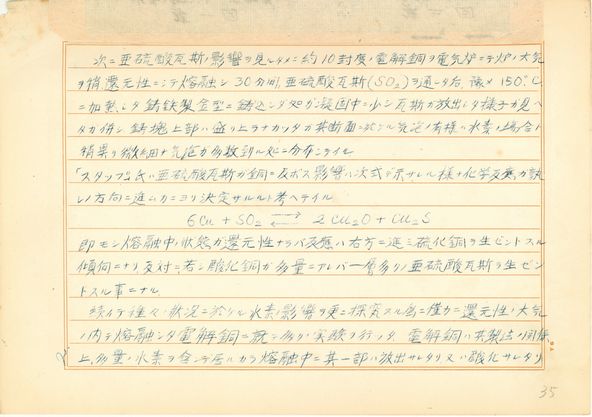 次ニ亜硫酸瓦斯ノ影響ヲ見ルタメニ約10封度ノ電解銅ヲ電気炉ニテ炉ノ大気
ヲ稍還元性ニシテ熔融シ30分間亜硫酸瓦斯(SO₂)ヲ通シタ后、豫メ150°C
ニ加熱シタ鋳鉄製金型ニ鋳込ンタ処ガ凝固中ニ少シ瓦斯ガ放出シタ様子ガ見ヘ
タガ併シ鋳塊上部ハ盛リ上ラナカツタガ其断面ニ於ケル気泡ノ有様ハ水素ノ場合ト
稍異リ微細ナ気泡ガ多数到ル処ニ分布シテイル
「スタツブス」氏ハ亜硫酸瓦斯ガ銅ニ及ボス影響ハ次式デ示サレル様ナ化学反應ガ孰
レノ方向ニ進ムカニヨリ決定サルルト考ヘテイル
6Cu + SO₂ ⇄ 2Cu₂O + Cu₂S
即モシ熔融中ノ状態ガ還元性ナラバ反應ハ右方ニ進ミ硫化銅ヲ生ゼントスル
傾向ニナリ反対ニ若シ酸化銅ガ多量ニナレバ一層多クノ亜硫酸瓦斯ヲ生ゼン
トスル事ニナル
続イテ種々ノ状況ニ於ケル水素ノ影響ヲ更ニ探究スル為ニ僅カニ還元性ノ大気
ノ内デ熔融シタ電解銅ニ就テ多クノ実験ヲ行ツタ 電解銅ハ其製法ノ関係
上多量ノ水素ヲ含ンデ居ルカラ熔融中ニ其一部ハ放出サレタリ又ハ酸化サレタリ
35